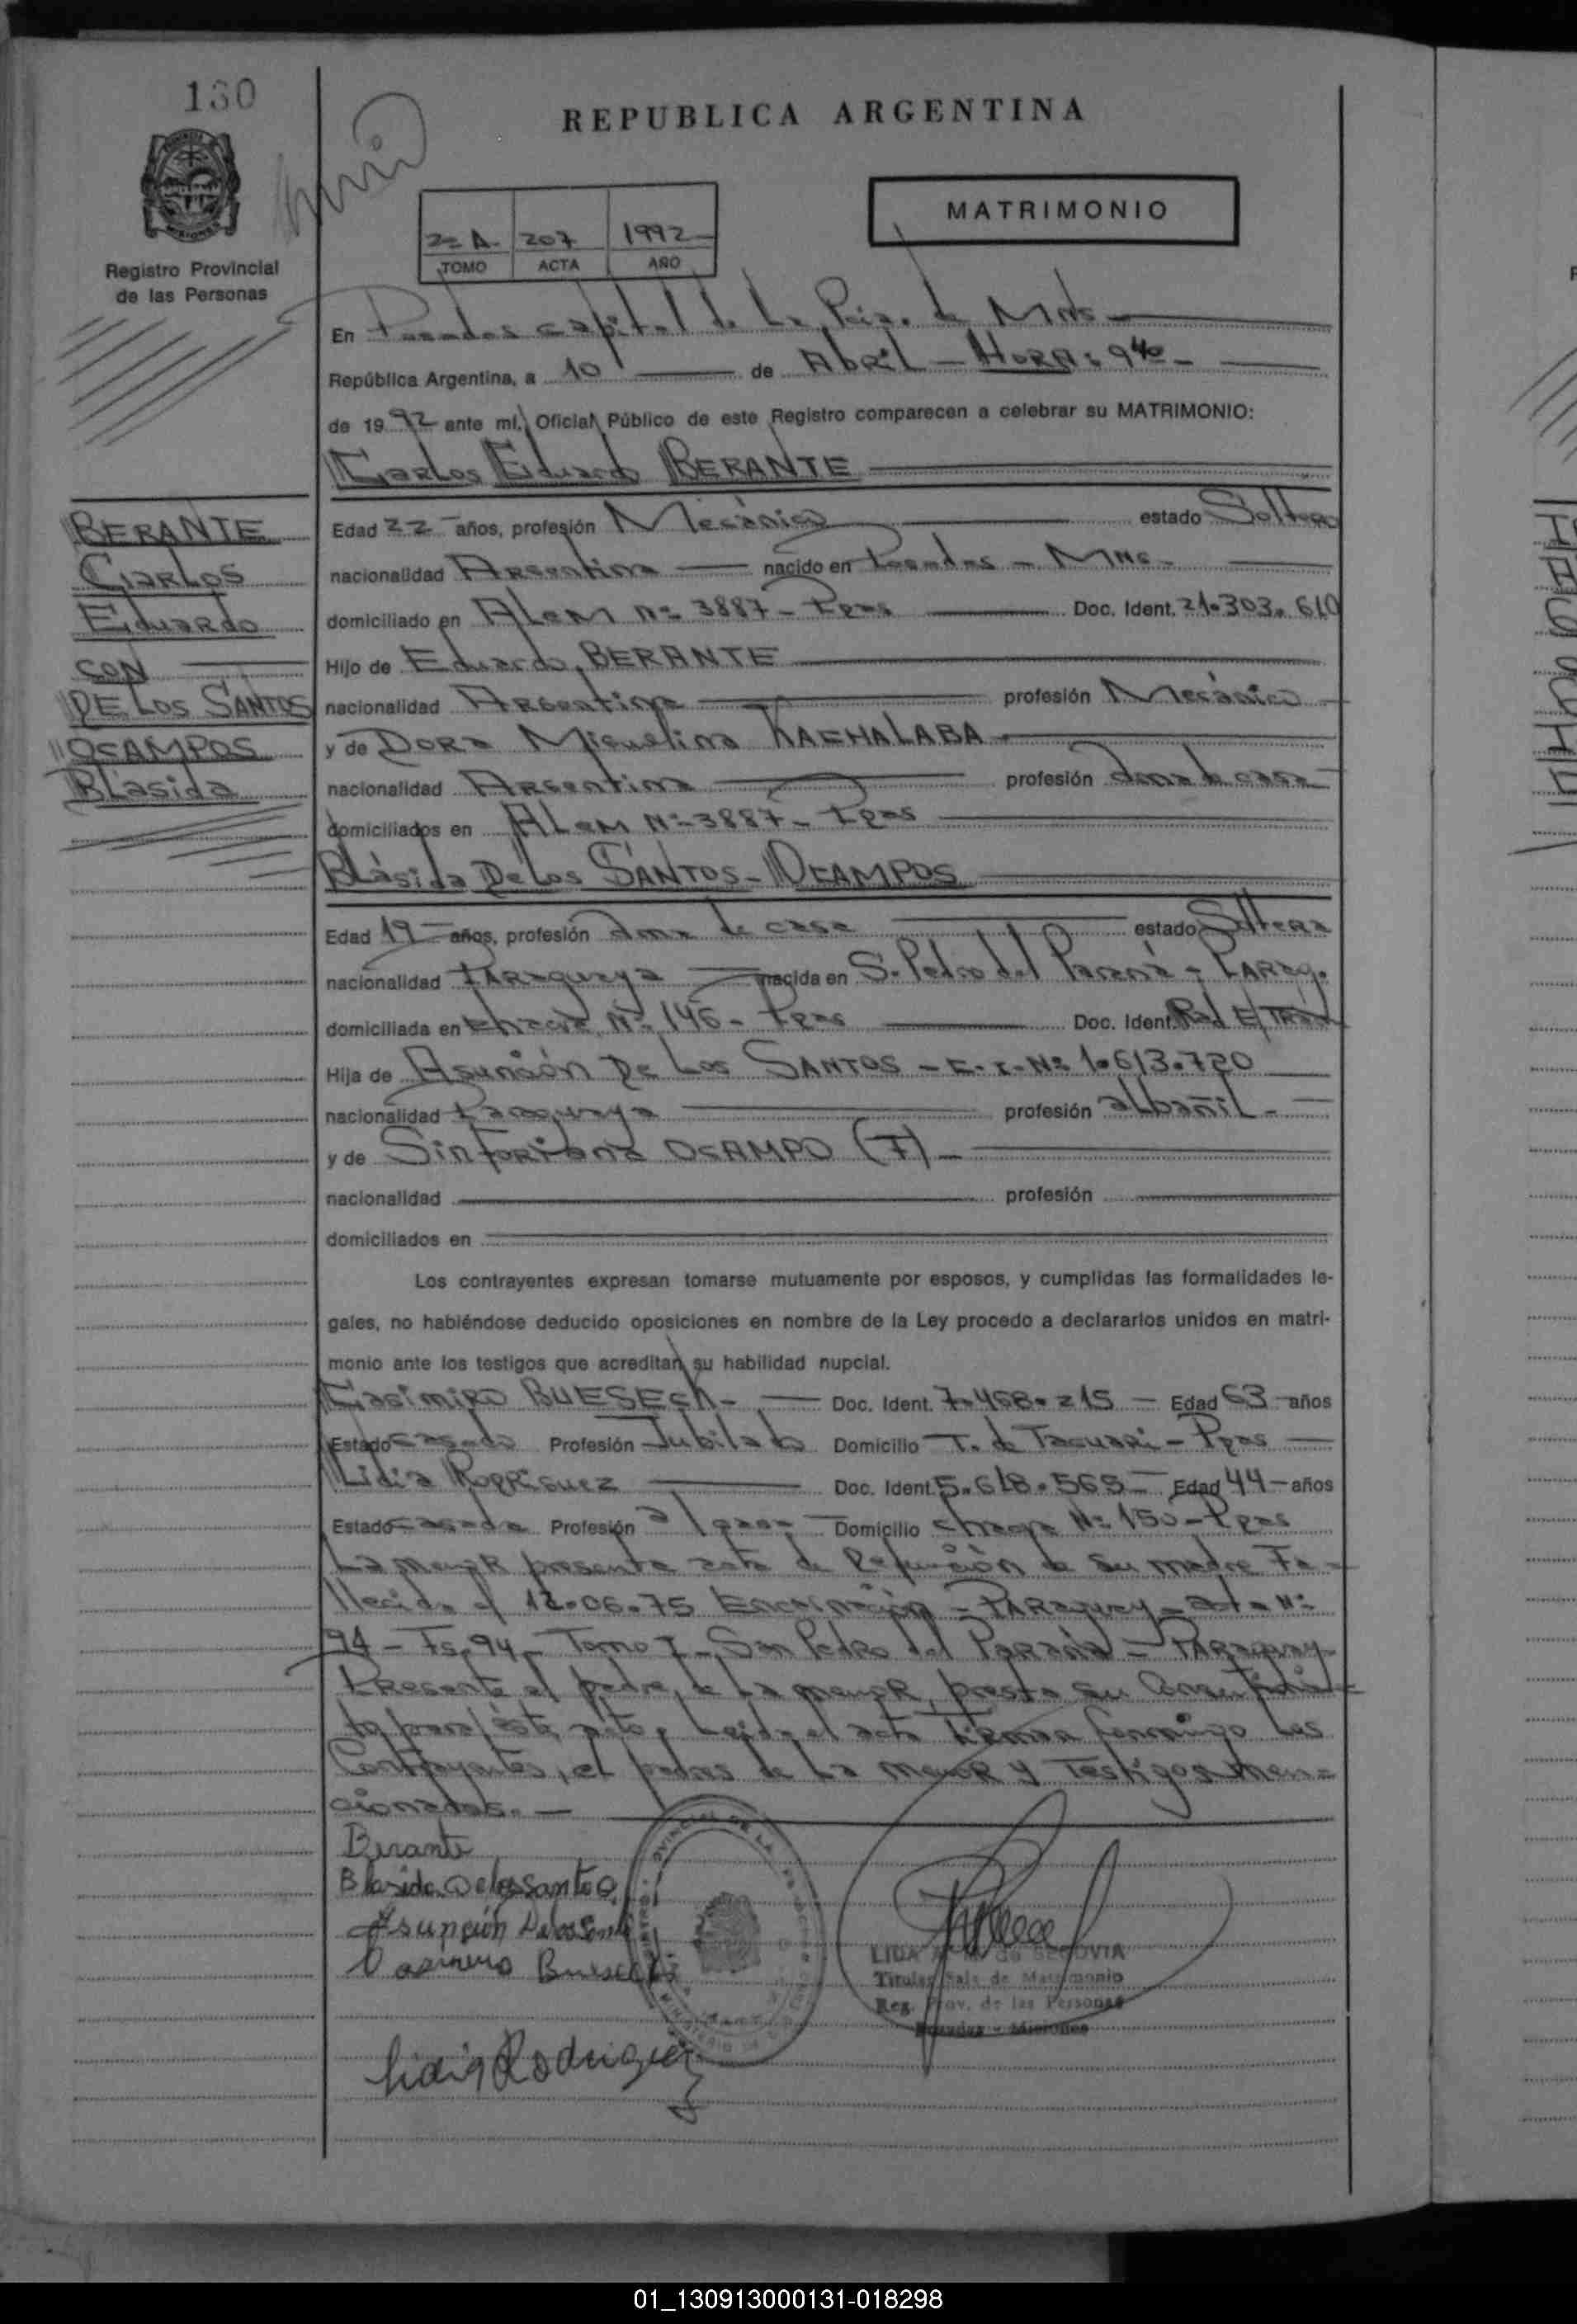 130
REPUBLICA ARGENTINA
MATRIMONIO
2º A. 207 1992
TOMO ACTA AÑO
Registro Provincial
de las Personas
En Posadas capital de La Pcia. de Mnes
República Argentina, a 10 de Abril - HORA: 9 40 -
de 1992 ante mí, Oficial Público de este Registro comparecen a celebrar su MATRIMONIO:
Carlos Eduardo BERANTE
BERANTE
Carlos
Eduardo
CON
DE Los SANTOS
OCAMPOS
Blásida
Edad 22 años, profesión Mecánico estado Soltero
nacionalidad Argentina nacido en Posadas - Mnes -
domiciliado en Alem Nº 3887 - Pdas Doc. Ident. 21.303.610
Hijo de Eduardo BERANTE
nacionalidad Argentina profesión Mecánico
y de Dora Miguelina KACHALABA
nacionalidad Argentina profesión ama de casa
domiciliados en Alem Nº 3887 - Pdas
Blásida De Los SANTOS - OCAMPOS
Edad 19 años, profesión Ama de casa estado Soltera
nacionalidad Paraguaya nacida en S. Pedro del Paraná - Parag.
domiciliada en Chacra Nº 145 - Pdas Doc. Ident. Rad. E/Tram
Hija de Asunción De Los SANTOS - C.I. Nº 1.613.720
nacionalidad Paraguaya profesión albañil -
y de Sinforiana OCAMPO (F) -
nacionalidad profesión
domiciliados en
Los contrayentes expresan tomarse mutuamente por esposos, y cumplidas las formalidades le-
gales, no habiéndose deducido oposiciones en nombre de la Ley procedo a declararlos unidos en matri-
monio ante los testigos que acreditan su habilidad nupcial.
Casimiro BUESECK - Doc. Ident. 7.468.215 - Edad 63 años
Estado casado Profesión Jubilado Domicilio T. de Tacuarí - Pdas
Lidia Rodriguez Doc. Ident. 5.618.565 - Edad 44 años
Estado casada Profesión Domicilio chacra Nº 150 - Pdas
La menor presenta acta de Defunción de su madre Fa-
llecida el 12.06.75 Encarnación - Paraguay - acta Nº
94 - Fs. 94 - Tomo I - San Pedro del Paraná - Paraguay
Presente el padre de La menor, presta su Consentimien
to para éste acto, Leída el acta Firman conmigo Los
Contrayentes, el padre de La menor y Testigos men-
cionados. -
Berante
Blasida Delossantos
Asunción Delossantos
Casimiro Bueseck
Lidia Rodriguez
LIDA de SEGOVIA
Titular Sala de Matrimonio
Reg. Prov. de las Personas
Posadas - Misiones
01_130913000131-018298